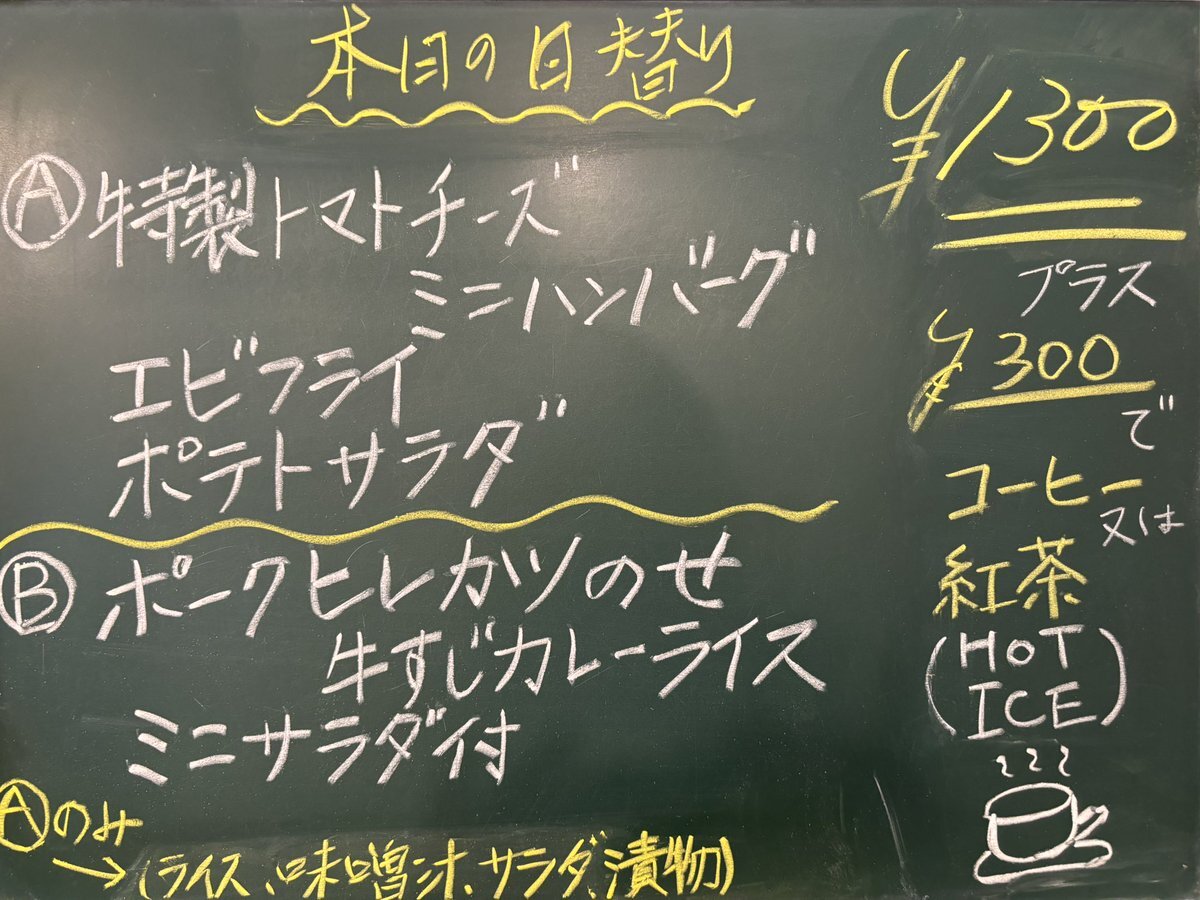 本日の日替り
Ⓐ特製トマトチーズ
ミニハンバーグ
エビフライ
ポテトサラダ
Ⓑポークヒレカツのせ
牛すじカレーライス
ミニサラダ付
Ⓐのみ
→(ライス、味噌汁、サラダ、漬物)
¥1300
プラス
¥300
で
コーヒー
又は
紅茶
(HOT
ICE)